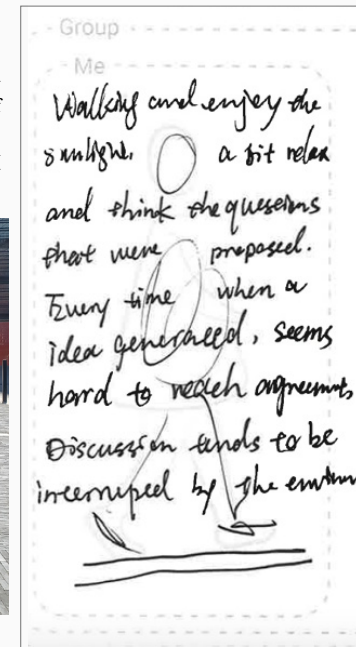 Group
Me
Walking and enjoy the
sunlight. a bit relax
and think the questions
that were proposed.
Every time when a
idea generated, seems
hard to reach agreement,
Discussion tends to be
interrupted by the